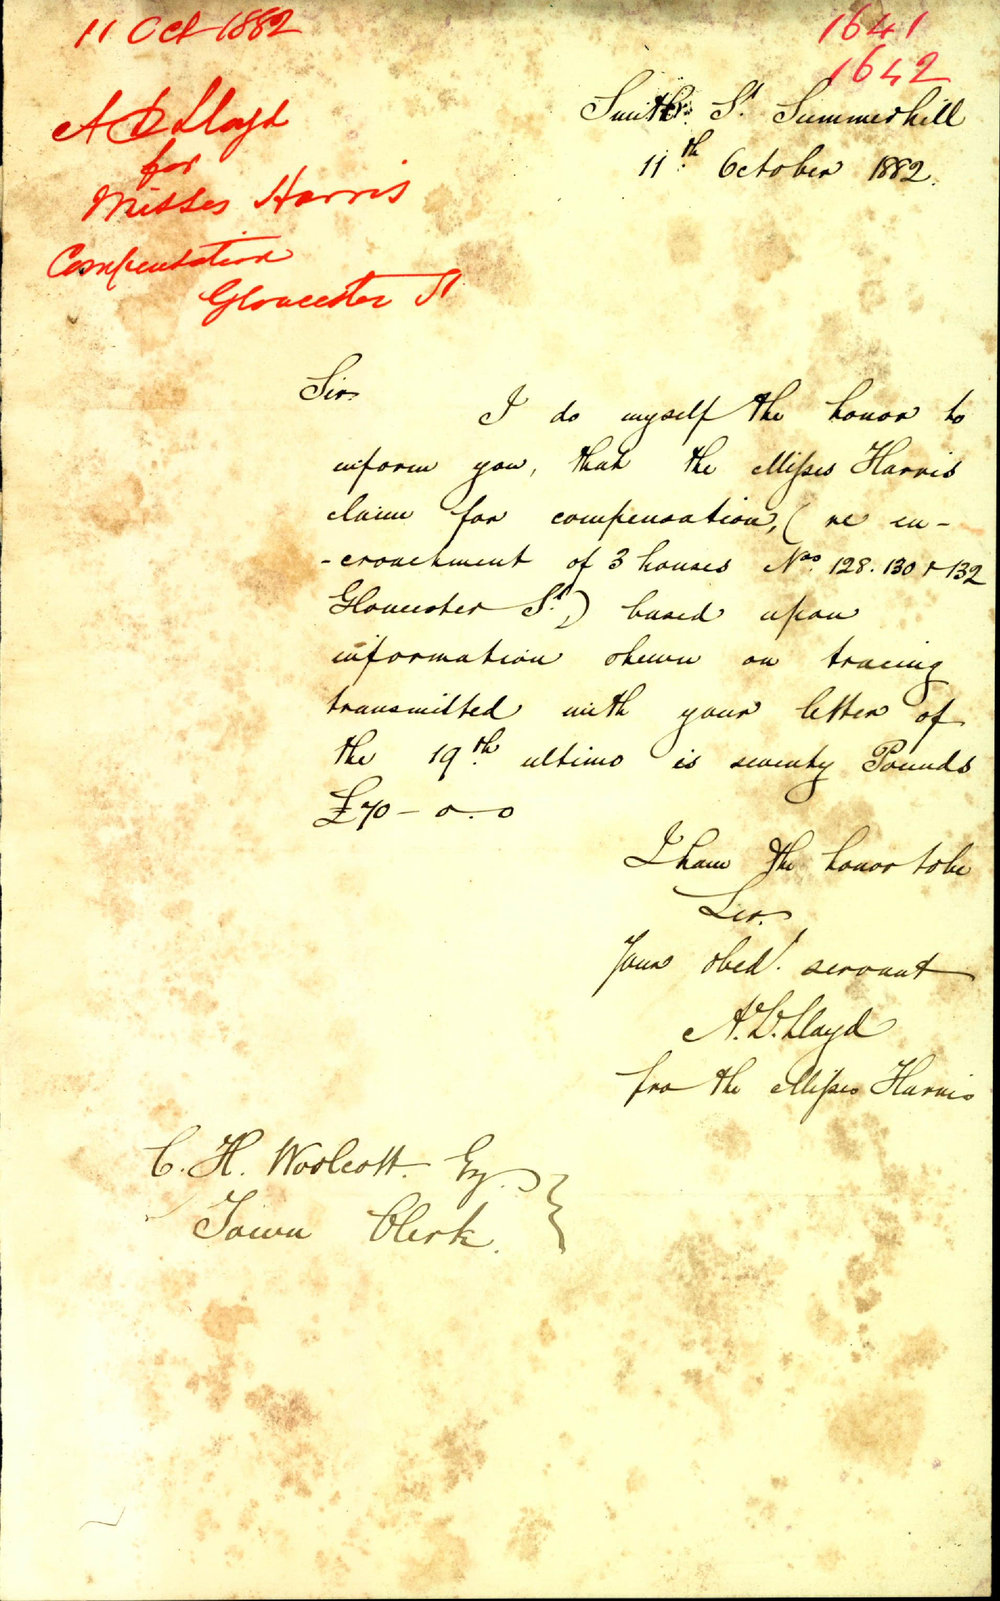 11 Oct 1882
1641
1642
A D Lloyd
for
Misses Harris
Compensation
Gloucester St
Smith St Summerhill
11th October 1882.
Sir
I do myself the honor to
inform you, that the Misses Harris
claim for compensation, (re en-
-croachment of 3 houses Nos. 128. 130 & 132
Gloucester St,) based upon
information shewn on tracing
transmitted with your letter of
the 19th ultimo is seventy Pounds
£70-0.0
I have the honor to be
Sir.
Your obedt. servant
A. D. Lloyd
pro the Misses Harris
C. H. Woolcott. Esq.
Town Clerk.